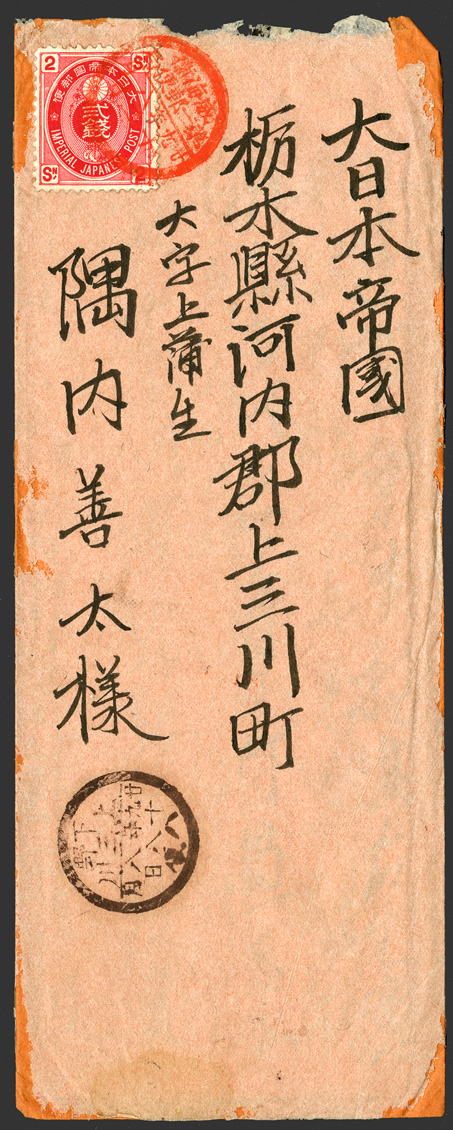 大日本帝國
栃木縣河内郡上三川町
大字上蒲生
隅内善太様
大日本帝國郵便
2 Sn
貳錢
IMPERIAL JAPANESE POST
Sn 2
下野
上三川
廿九年八月
十八日